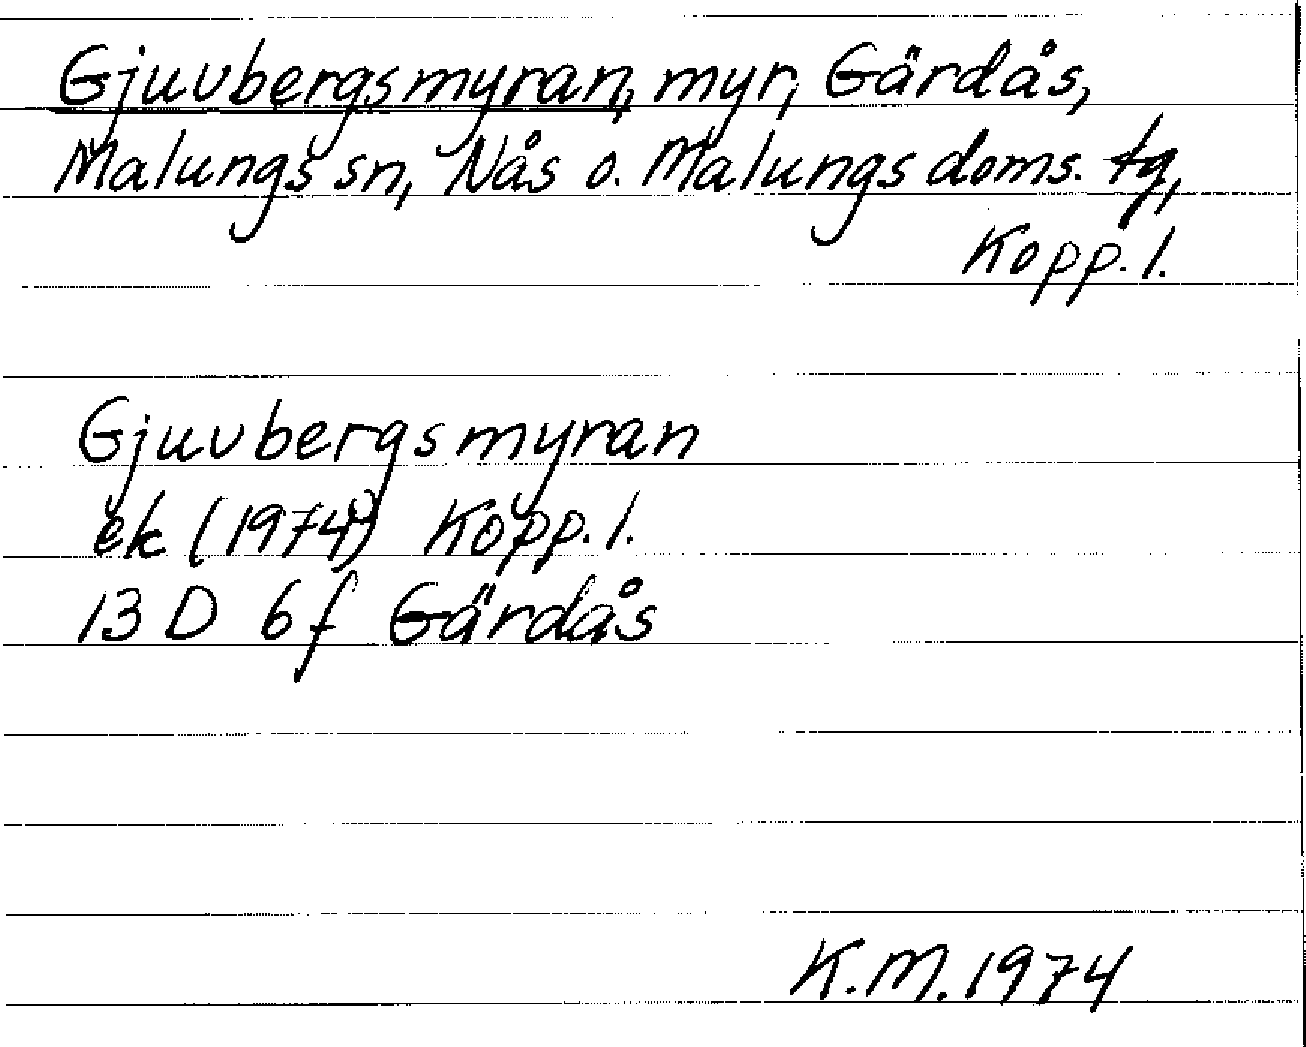 Gjuvbergsmyran, myr, Gärdås,
Malungs sn, Nås o. Malungs doms. tg,
Kopp. l.
Gjuvbergsmyran
ek (1974) Kopp. l.
13 D 6 f Gärdås
K.M. 1974